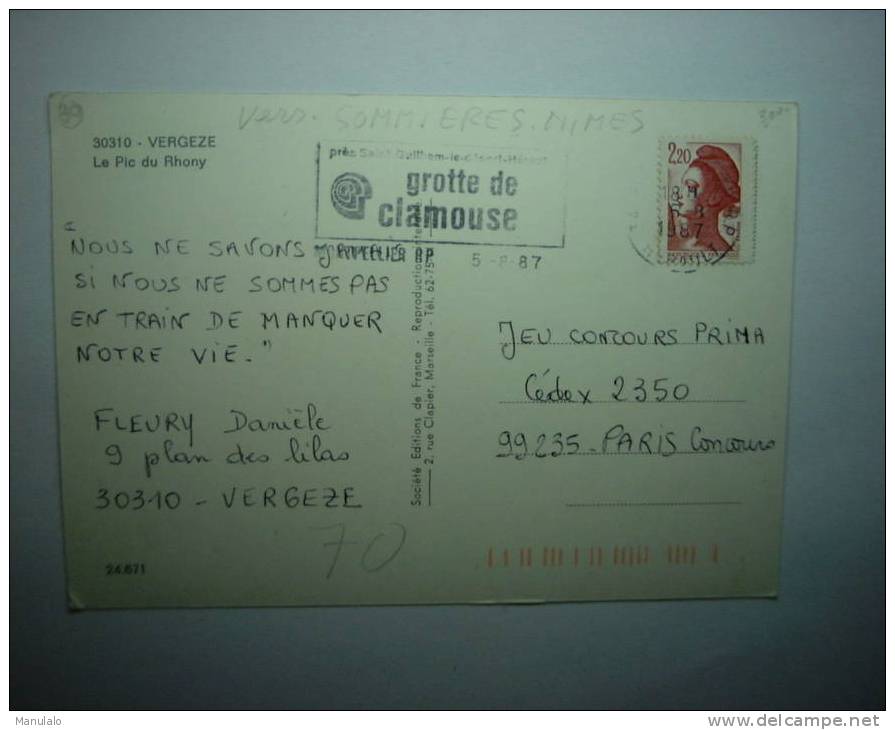 39
Vers. SOMMIERES. NIMES
30310 - VERGEZE
Le Pic du Rhony
près Saint-Guilhem-le-désert-Hérault
grotte de
clamouse
MONTPELLIER RP 5-8-87
2,20
8H
5-8
1987
"NOUS NE SAVONS JAMAIS
SI NOUS NE SOMMES PAS
EN TRAIN DE MANQUER
NOTRE VIE."
FLEURY Danièle
9 plan des lilas
30310 - VERGEZE
70
24.671
Société Editions de France - Reproduction interdite
2, rue Clapier, Marseille - Tél. 62-75
JEU CONCOURS PRIMA
Cédex 2350
99235 - PARIS Concours
Manulalo
delcampe.net